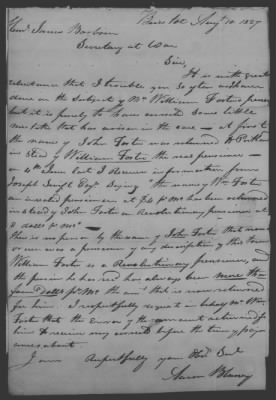 Augt 10. 1827
Honl James Barbour
Secretary at War
Sir,
It is with great
reluctance that I trouble you so often as I have
done on the Subject of Mr William Foster's pension
but it is purely to have corrected some little
mistake that has arisen in the case — at first
the name of John Foster was returned
in stead of William Foster the real pensioner —
on 4th June last I received information from
Joseph Esqr Saying "the name of Wm Foster
an invalid pensioner at $4 pr Mo has been returned
in stead of John Foster a Revolutionary pensioner at
8 dolls pr Mo" —
There is no person by the name of John Foster that now
or ever was a pensioner of any description of this
William Foster is a Revolutionary pensioner, and
the pension he has recd has always been more than
four dolls pr Mo the amt that is now returned
for him I respectfully request in behalf Mr Wm
Foster that the error of the amount returned for
him to receive may be corrected before the time of pay
comes about
I am respectfully your Obt Sert
Aaron Blaney